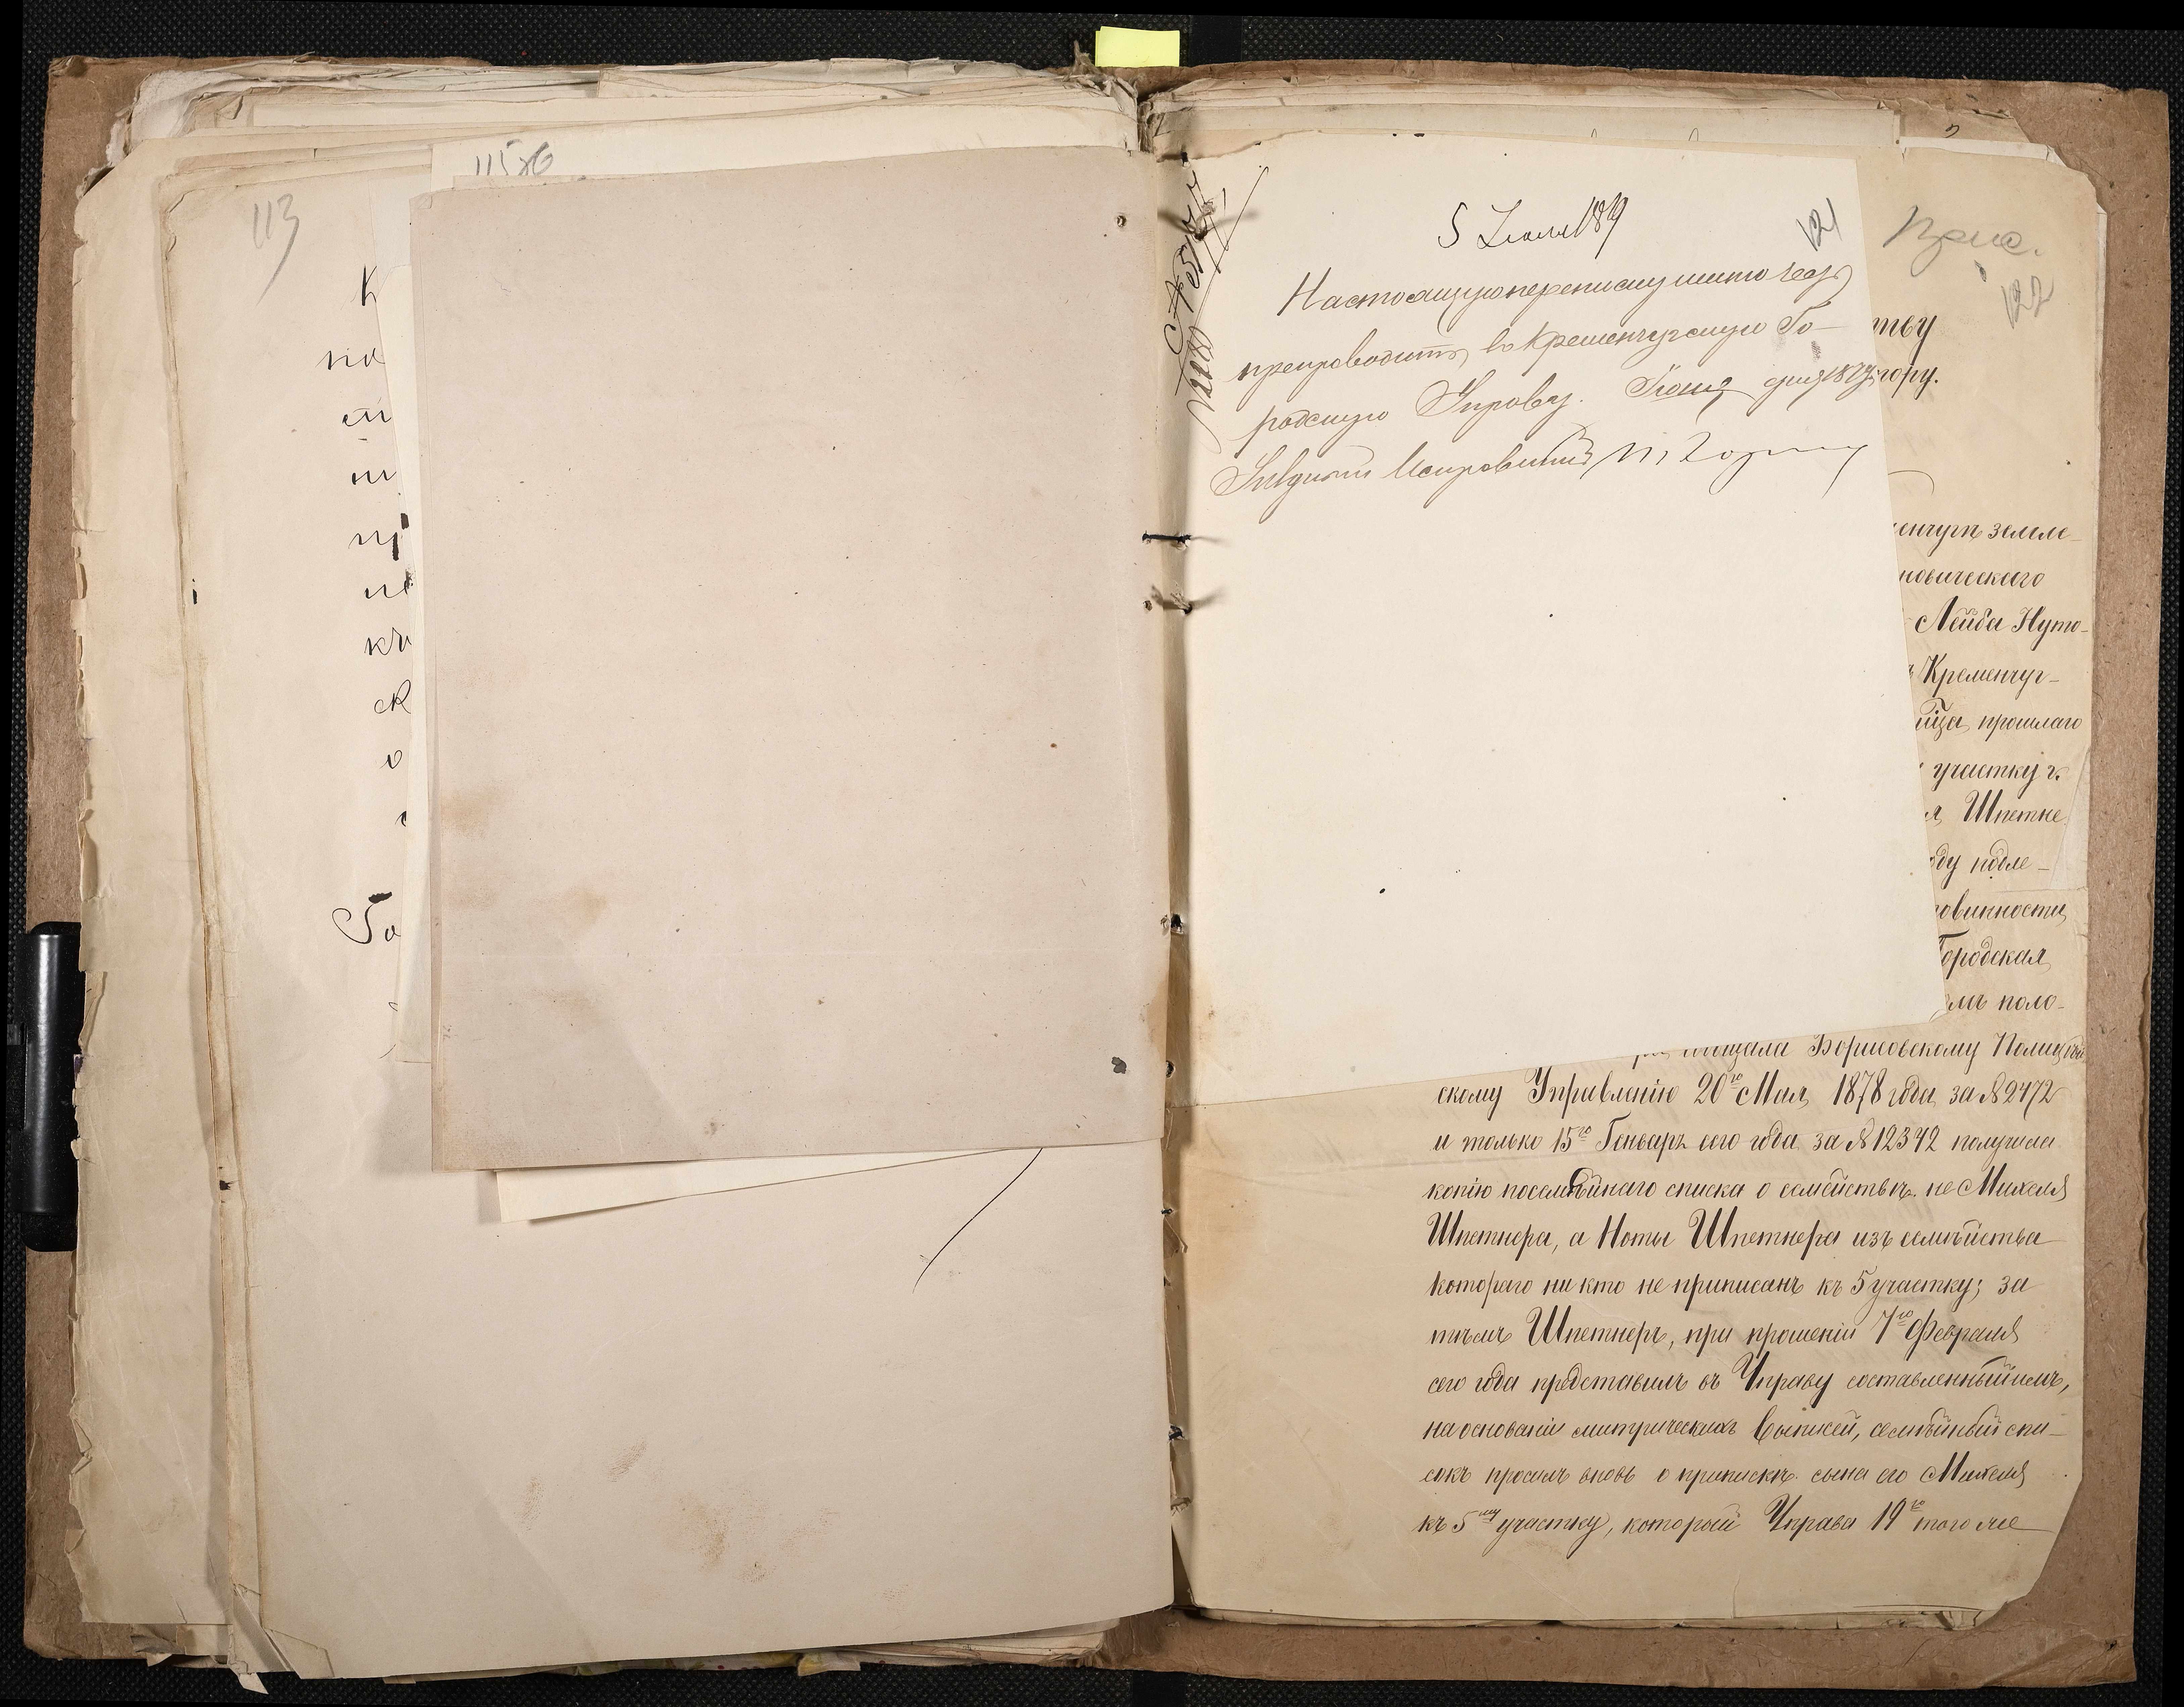 113
115 об
К
по
ст
пр
ко
къ
ск
о
Го
121
Настоящую переписку имею честь
препроводить въ Кременчугскую Го-
родскую Управу. Іюня дня 187 г.
Уѣздный Исправникъ
Прис.
122
тву
тору.
енчугъ земле-
новическаго
Лейба Нуто-
Кременчуг-
прошлаго
участку г.
Шпетне
оду подле-
овинности,
Городская
омъ поло-
Борисовскому Полицей
скому Управленію 20го Мая 1878 года за № 2472
и только 15го Генваря сего года за № 12342 получила
копію посемейнаго списка о семействѣ не Михеля
Шпетнера, а Ноты Шпетнера изъ семейства
котораго ни кто не приписанъ къ 5 участку; за
тѣмъ Шпетнеръ, при прошеніи 7го Февраля
сего года представилъ въ Управу составленный имъ,
на основаніи митрическихъ выписей, семейный спи-
сокъ просилъ вновь о припискѣ сына его Михеля
къ 5му участку, который Управа 19го того же